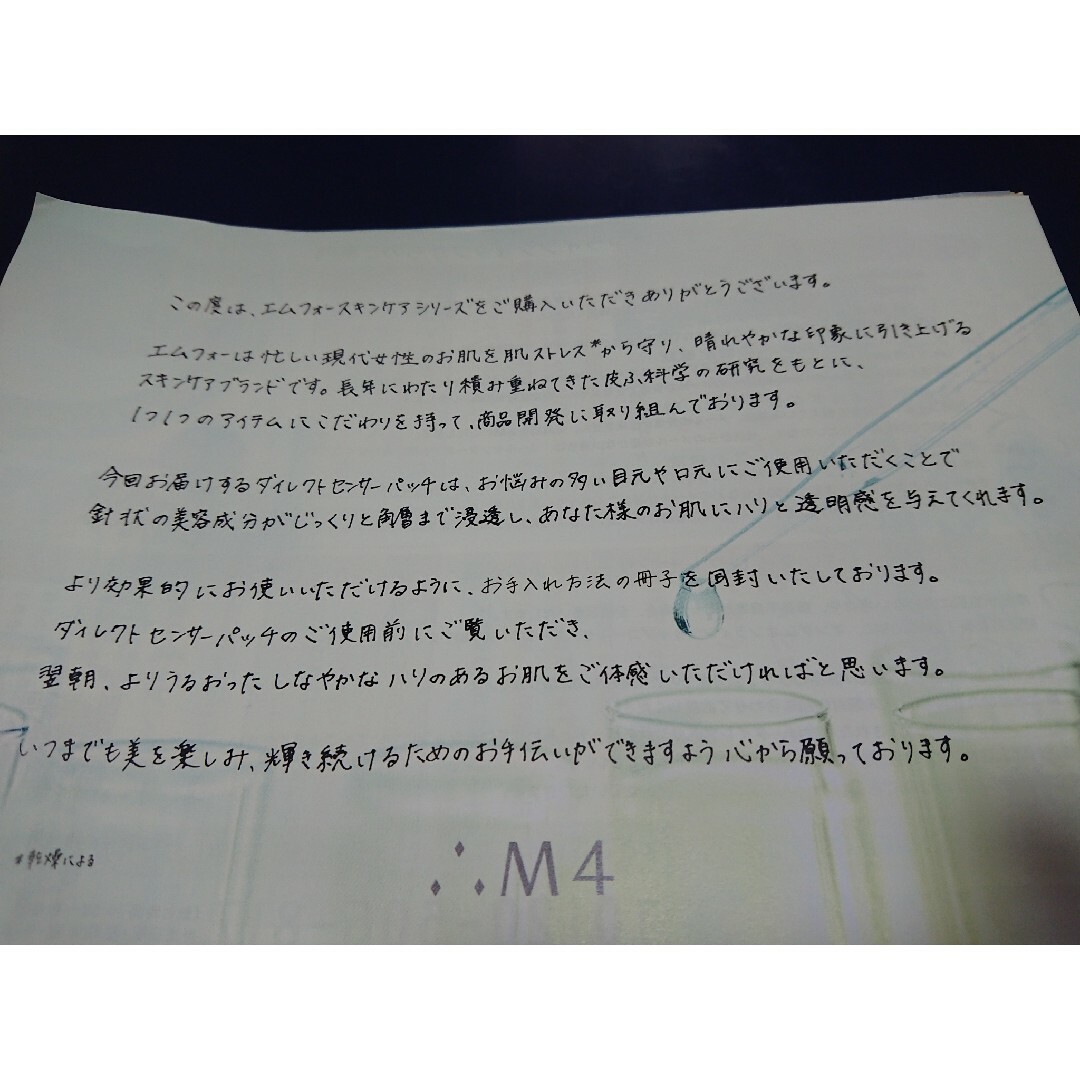 この度は、エムフォースキンケアシリーズをご購入いただきありがとうございます。
エムフォーは忙しい現代女性のお肌を肌ストレス*から守り、晴れやかな印象に引き上げる
スキンケアブランドです。長年にわたり積み重ねてきた皮ふ科学の研究をもとに、
1つ1つのアイテムにこだわりを持って、商品開発に取り組んでおります。
今回お届けするダイレクトセンサーパッチは、お悩みの多い目元や口元にご使用いただくことで
針状の美容成分がじっくりと角層まで浸透し、あなた様のお肌にハリと透明感を与えてくれます。
より効果的にお使いいただけるように、お手入れ方法の冊子を同封いたしております。
ダイレクトセンサーパッチのご使用前にご覧いただき、
翌朝、よりうるおったしなやかなハリのあるお肌をご体感いただければと思います。
いつまでも美を楽しみ、輝き続けるためのお手伝いができますよう心から願っております。
*乾燥による
∴M4